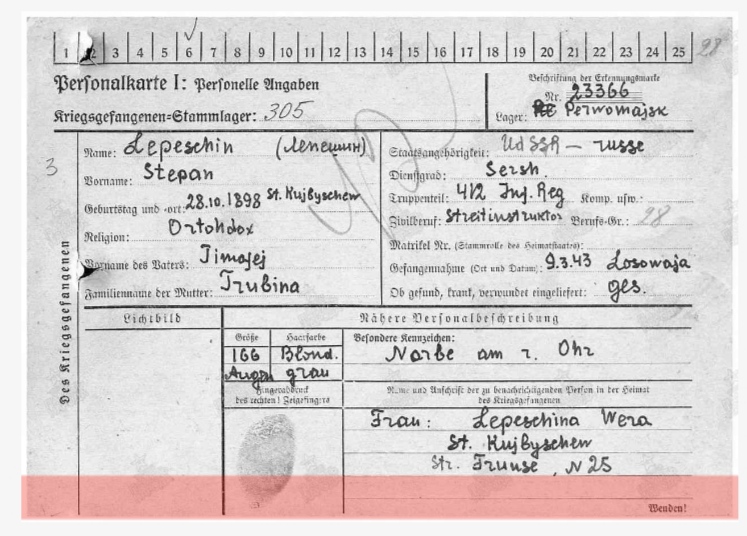 1 2 3 4 5 6 7 8 9 10 11 12 13 14 15 16 17 18 19 20 21 22 23 24 25 28
Personalkarte I: Personelle Angaben
Kriegsgefangenen=Stammlager: 305
Beschriftung der Erkennungsmarke
Nr. 23366
Lager: Perwomajsk
3
Name: Lepeschin (Лепешин)
Vorname: Stepan
Geburtstag und -ort: 28.10.1898 St. Kujbyschew
Religion: Ortohdox
Vorname des Vaters: Timofej
Familienname der Mutter: Trubina
Staatsangehörigkeit: UdSSR — russe
Dienstgrad: Sersh.
Truppenteil: 412 Inf. Reg Komp. usw.:
Zivilberuf: Streitinstruktor Berufs-Gr.: 28
Matrikel Nr. (Stammrolle des Heimatstaates):
Gefangennahme (Ort und Datum): 9.3.43 Losowaja
Ob gesund, krank, verwundet eingeliefert: ges.
Des Kriegsgefangenen
Lichtbild
Nähere Personalbeschreibung
Größe Haarfarbe
166 Blond.
Augen grau
Fingerabdruck
des rechten! Zeigefingers
Besondere Kennzeichen:
Narbe am r. Ohr
Name und Anschrift der zu benachrichtigenden Person in der Heimat
des Kriegsgefangenen
Frau: Lepeschina Wera
St. Kujbyschew
Str. Frunse, N 25
Wenden!